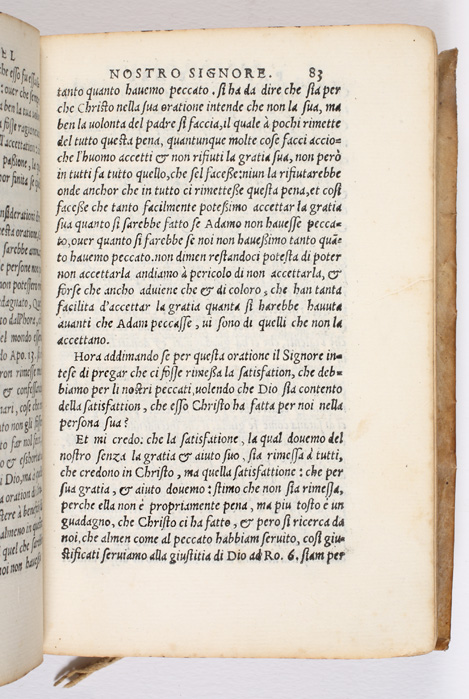 NOSTRO SIGNORE. 83
tanto quanto hauemo peccato. si ha da dire che sia per
che Christo nella sua oratione intende che non la sua, ma
ben la volonta del padre si faccia, il quale à pochi rimette
del tutto questa pena, quantunque molte cose facci accio-
che l'huomo accetti & non rifiuti la gratia sua, non però
in tutti fa tutto quello, che sel facesse: niun la rifiutarebbe
onde anchor che in tutto ci rimettesse questa pena, et cosi
facesse che tanto facilmente potessimo accettar la gratia
sua quanto si sarebbe fatto se Adamo non hauesse pecca-
to, ouer quanto si farebbe se noi non hauessimo tanto quā-
to hauemo peccato. non dimen restandoci potesta di poter
non accettarla andiamo à pericolo di non accettarla, &
forse che ancho aduiene che & di coloro, che han tanta
facilita d'accettar la gratia quanta si harebbe hauuta
auanti che Adam peccasse, ui sono di quelli che non la
accettano.
Hora addimando se per questa oratione il Signore in-
tese di pregar che ci fosse rimessa la satisfation, che deb-
biamo per li nostri peccati, uolendo che Dio sia contento
della satisfattion, che esso Christo ha fatta per noi nella
persona sua?
Et mi credo: che la satisfatione, la qual douemo del
nostro senza la gratia & aiuto suo, sia rimessa à tutti,
che credono in Christo, ma quella satisfattione: che per
sua gratia, & aiuto douemo: stimo che non sia rimessa,
perche ella non è propriamente pena, ma piu tosto è un
guadagno, che Christo ci ha fatto, & pero si ricerca da
noi, che almen come al peccato habbiam seruito, cosi giu-
stificati seruiamo alla giustitia di Dio ad Ro. 6. siam per